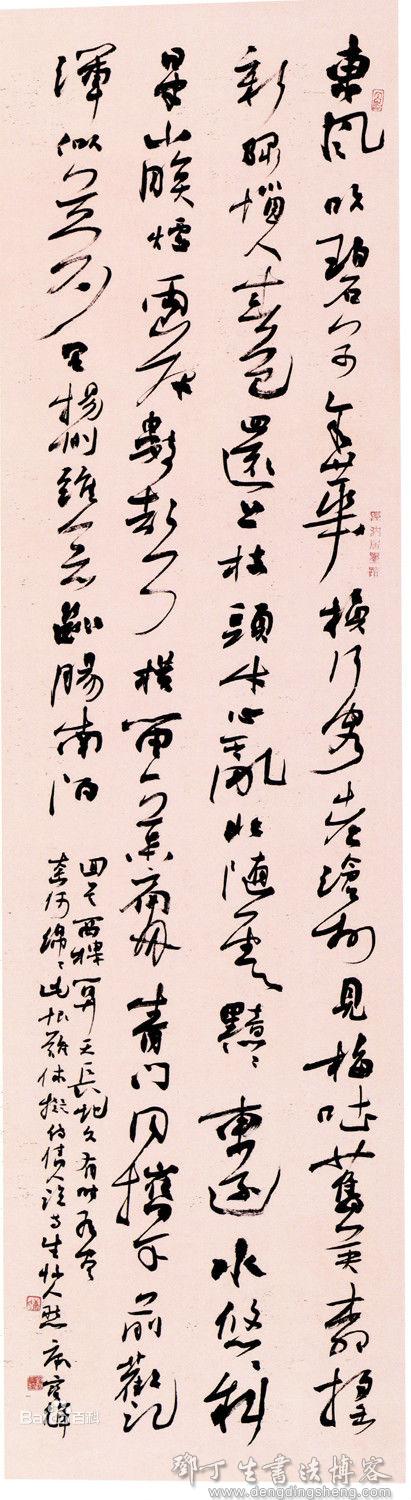 東風吹碧草年華換行客老滄洲見梅吐舊英柳搖
新綠惱人春色還上枝頭寸心亂北隨雲黯〻東逐水悠〻斜
日半山暝煙兩岸數聲橫笛一葉扁舟青門同攜手前歡記
渾似夢里揚州誰念斷腸南陌
回首西樓算天長地久有時有盡
奈何綿〻此恨難休擬待倩人說與生怕人愁
Baidu百科
鄧丁生書法博客
www.dengdingsheng.com